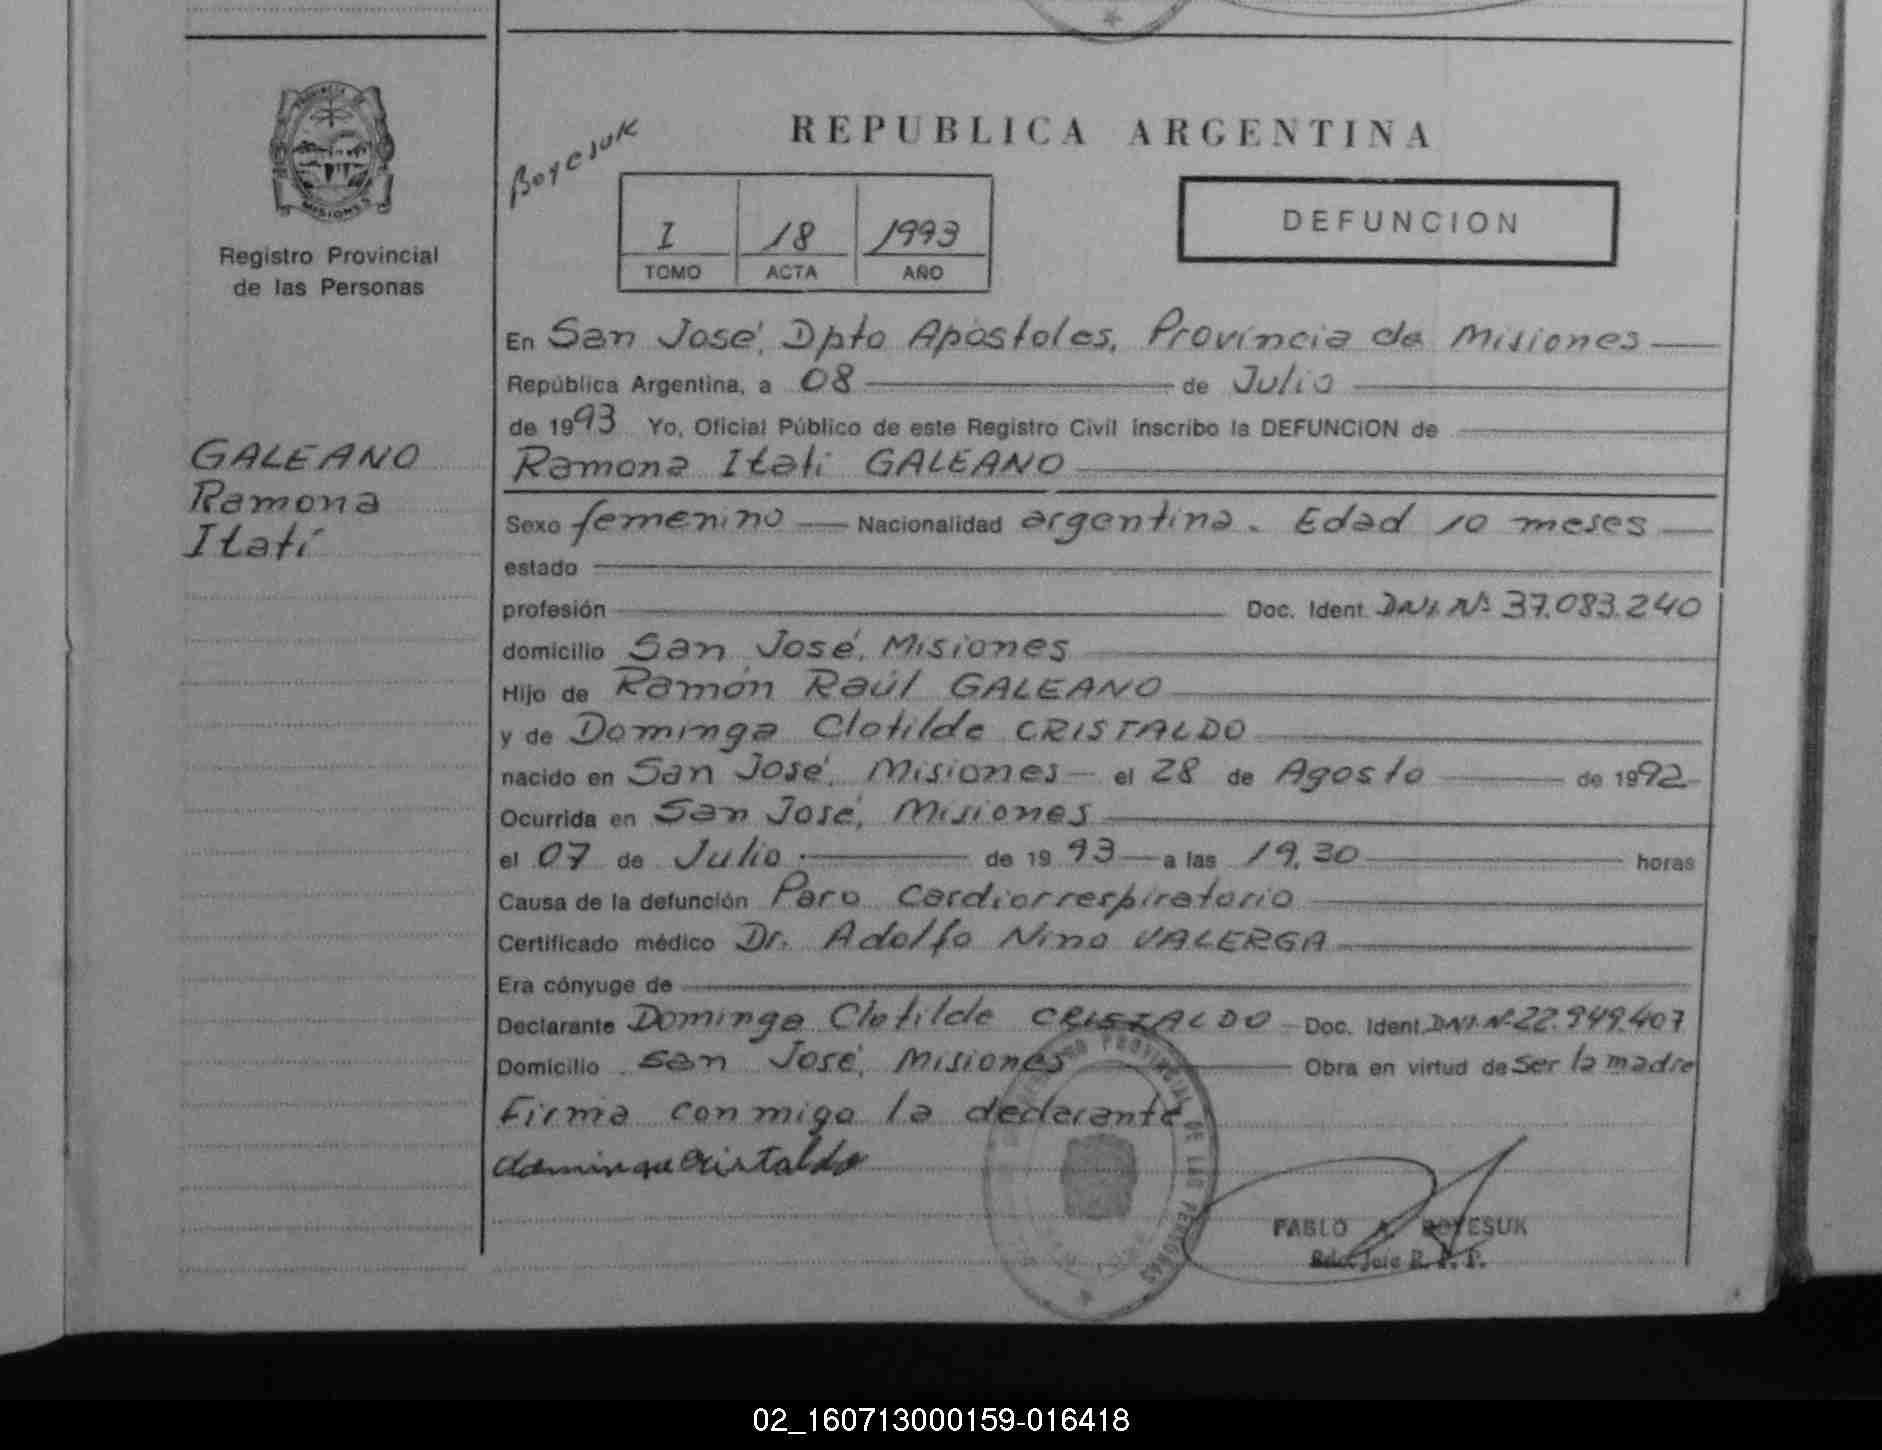 PROVINCIA DE
MISIONES
Registro Provincial
de las Personas
GALEANO
Ramona
Itatí
Boyesuk
REPUBLICA ARGENTINA
I 18 1993
TOMO ACTA AÑO
DEFUNCION
En San José, Dpto Apóstoles, Provincia de Misiones
República Argentina, a 08 de Julio
de 1993 Yo, Oficial Público de este Registro Civil inscribo la DEFUNCION de
Ramona Itatí GALEANO
Sexo femenino Nacionalidad argentina. Edad 10 meses
estado
profesión Doc. Ident. DNI. Nº 37.083.240
domicilio San José, Misiones
Hijo de Ramón Raúl GALEANO
y de Dominga Clotilde CRISTALDO
nacido en San José, Misiones el 28 de Agosto de 1992
Ocurrida en San José, Misiones
el 07 de Julio de 1993 a las 19,30 horas
Causa de la defunción Paro Cardiorrespiratorio
Certificado médico Dr. Adolfo Nino VALERGA
Era cónyuge de
Declarante Dominga Clotilde CRISTALDO Doc. Ident. DNI. Nº 22.949.407
Domicilio San José, Misiones Obra en virtud de Ser la madre
Firma conmigo la declarante
dominga Cristaldo
REGISTRO PROVINCIAL DE LAS PERSONAS
PABLO A. BOYESUK
R. P. P.
02_160713000159-016418